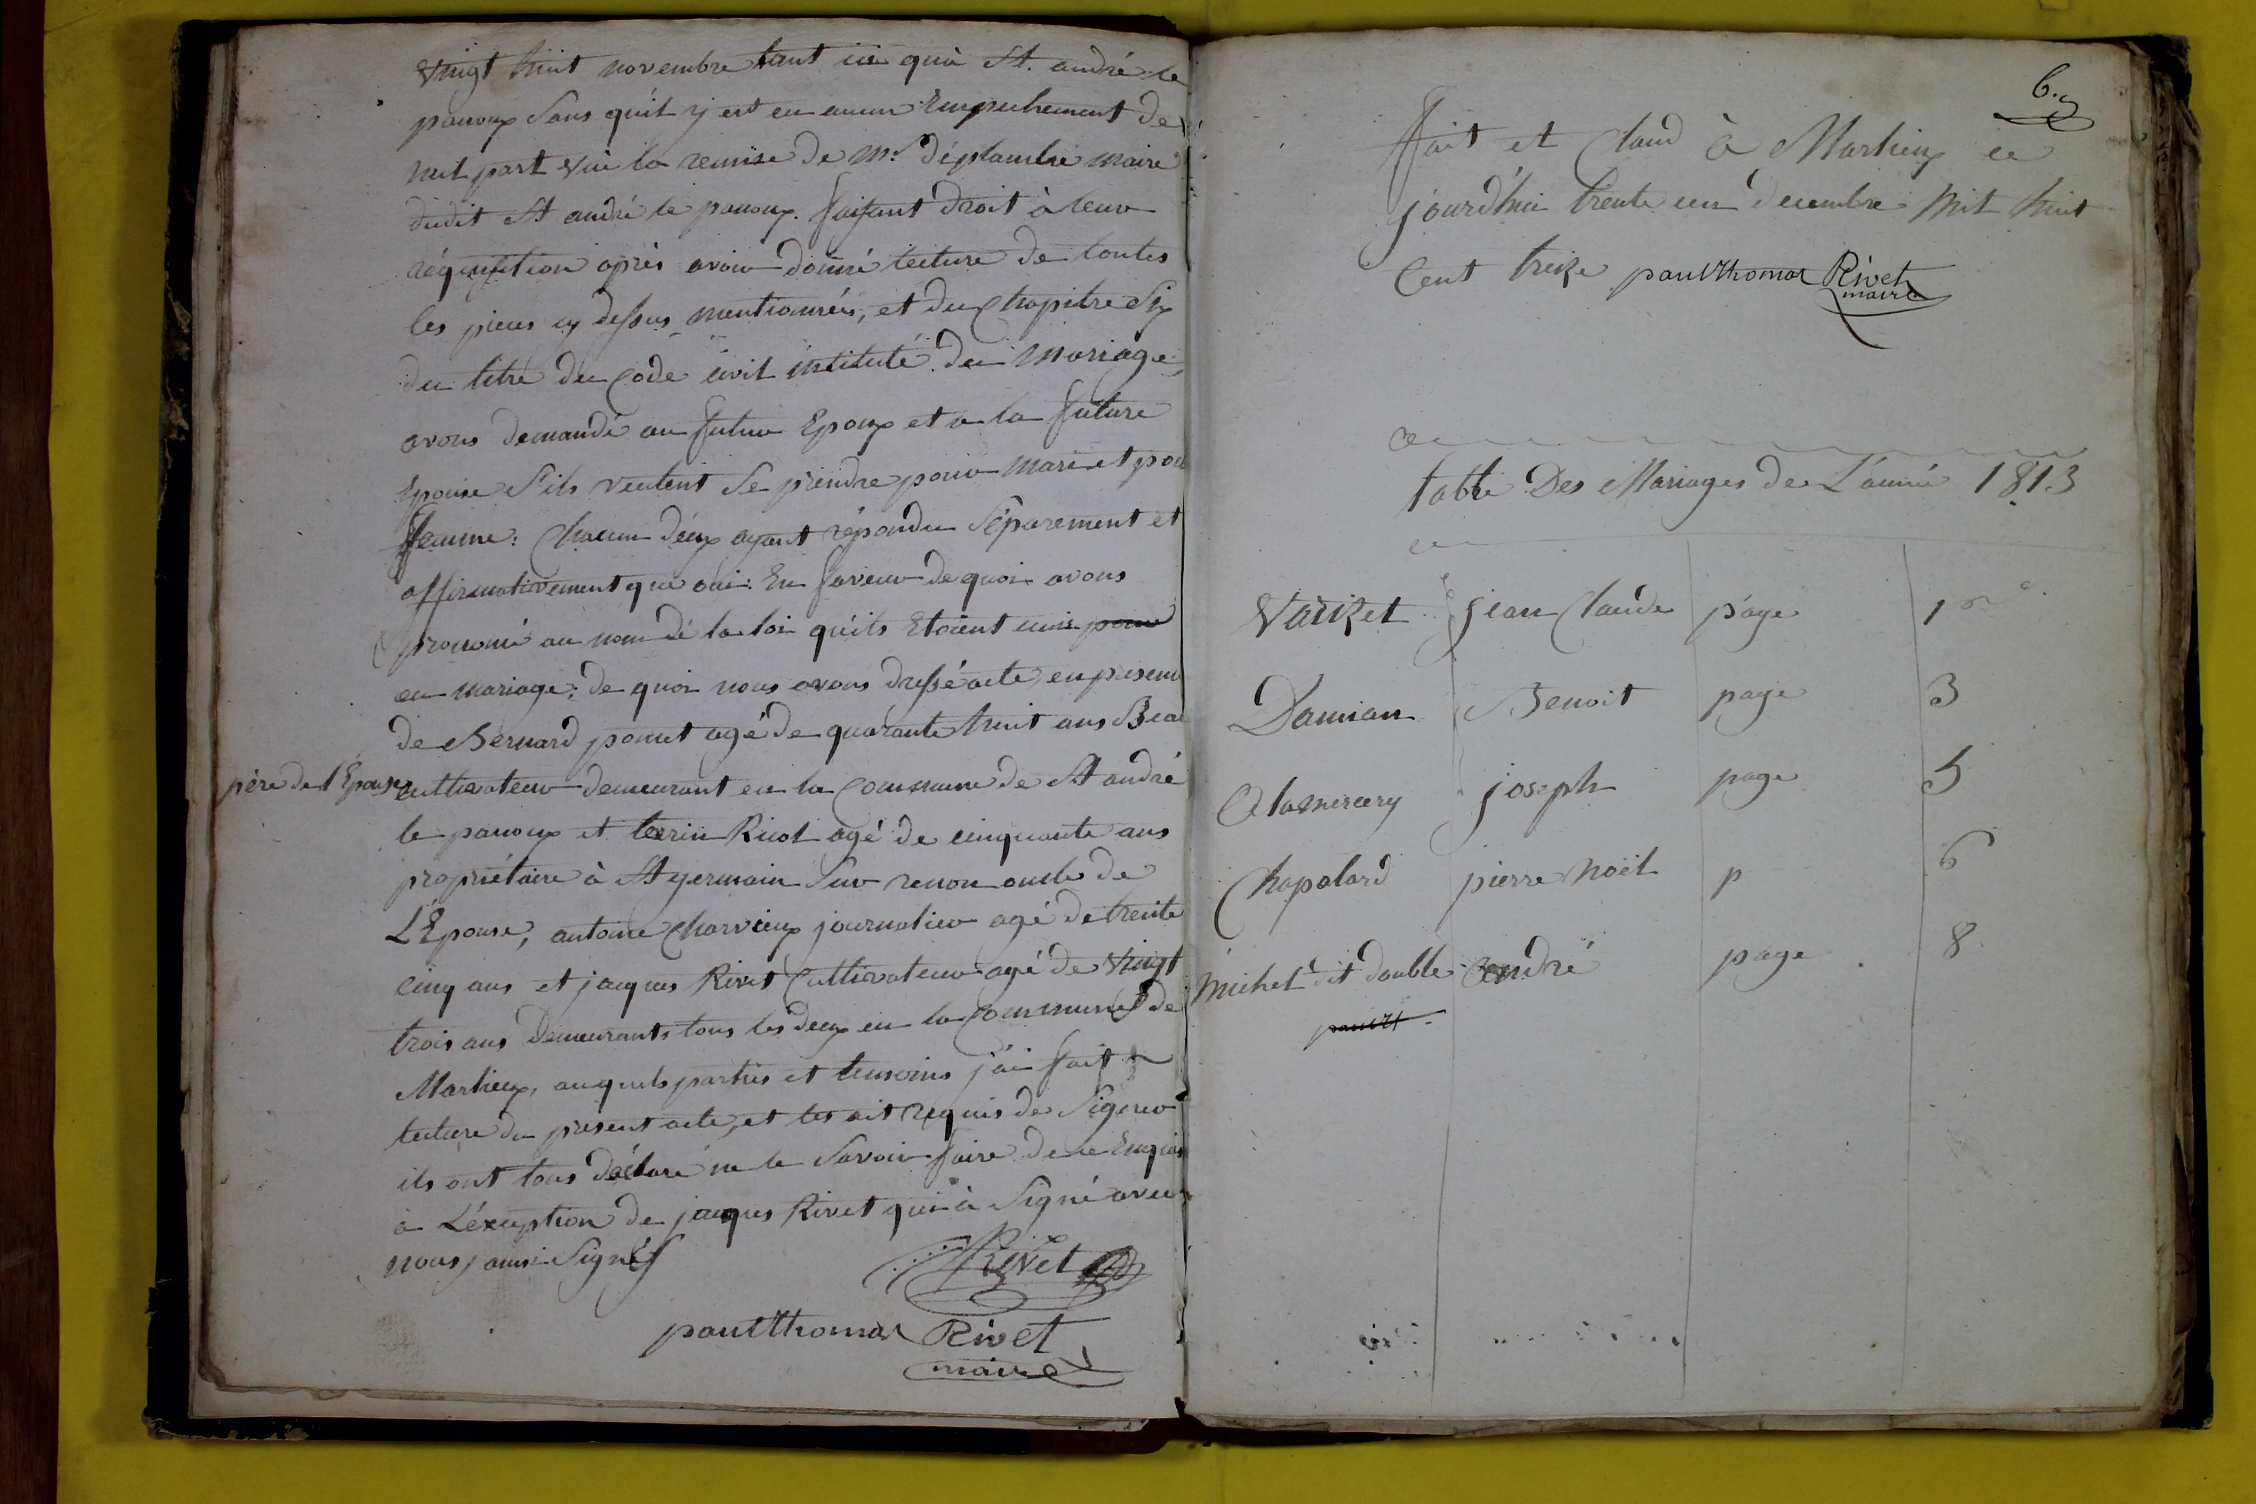 vingt huit novembre tant ici qu'à St. andré le
panoux Sans quil y est eu aucun Empechement de
nul part vûe la remise de Mr. déplambre maire
dudit St andré le panoux. faisant droit à leur
réquisition après avoir donné lecture de toutes
les pieces cy dessus mentionnées, et du Chapitre Six
du titre du Code civil intitulé du Mariage,
avons demandé au futur Epoux et a la future
Epouse S'ils veulent Se prendre pour Mari et pour
femme: Chacun d'eux ayant répondu Séparement et
affirmativement que oui: En faveur de quoi avons
prononcé au nom de la loi qu'ils Etoient unis pour
en mariage; de quoi nous avons dressé acte, en presence
de Bernard ponut agé de quarante huit ans Beau
père de l'Epouse cultivateur demeurant en la Commune de St andré
le panoux et Ricot agé de cinquante ans
propriétaire à St germain Sur renon oncle de
L'Epouse, antoine Charvieux journalier agé de trente
cinq ans et jacques Rivet Cultivateur agé de vingt
trois ans Demeurants tous les deux en la Commune de
Marlieux, auquels parties et temoins j'ai fait
lecture du présent acte, et les ait requis de Signer
ils ont tous déclaré ne le Savoir faire de ce Enquis
à L'éxception de jacques Rivet qui à Signé avec
nous Signés
Rivet
paul thomas Rivet
maire
6.
fait et Claud à Marlieux ce
jourd'hui trente un decembre Mil huit
Cent treize paul thomas Rivet
maire
table Des Mariages de L'année 1813
Varizet jean Claude page 1
Damian Benoit page 3
Alamercery joseph page 5
Chapolard pierre Noël p 6
Michel dit double andré page 8